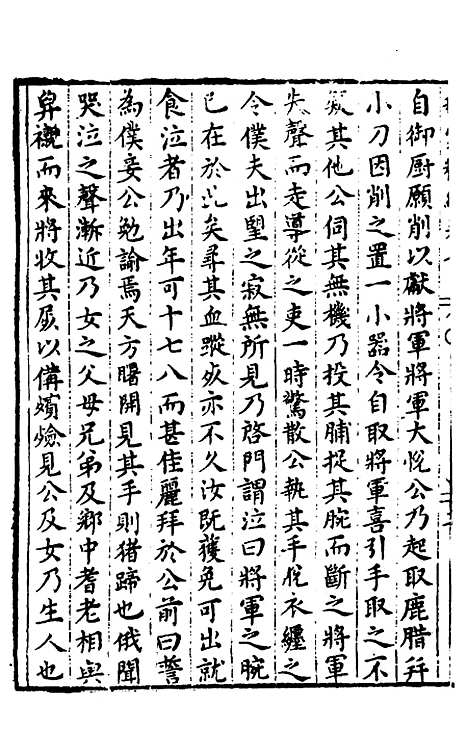 自御厨願削以獻將軍將軍大恱公乃起取鹿腊并
小刀因削之置一小器令自取將軍喜引手取之不
疑其他公伺其無機乃投其脯捉其腕而斷之將軍
失聲而走導從之吏一時驚散公執其手脱衣纏之
令僕夫出朢之寂無所見乃啓門謂泣曰將軍之腕
已在於此矣尋其血蹤死亦不久汝旣獲免可出就
食泣者乃出年可十七八而甚佳麗拜於公前曰誓
為僕妾公勉諭焉天方曙開見其手則猪蹄也俄聞
哭泣之聲漸近乃女之父母兄弟及鄉中耆老相與
舁櫬而來將收其屍以俻殯殮見公及女乃生人也